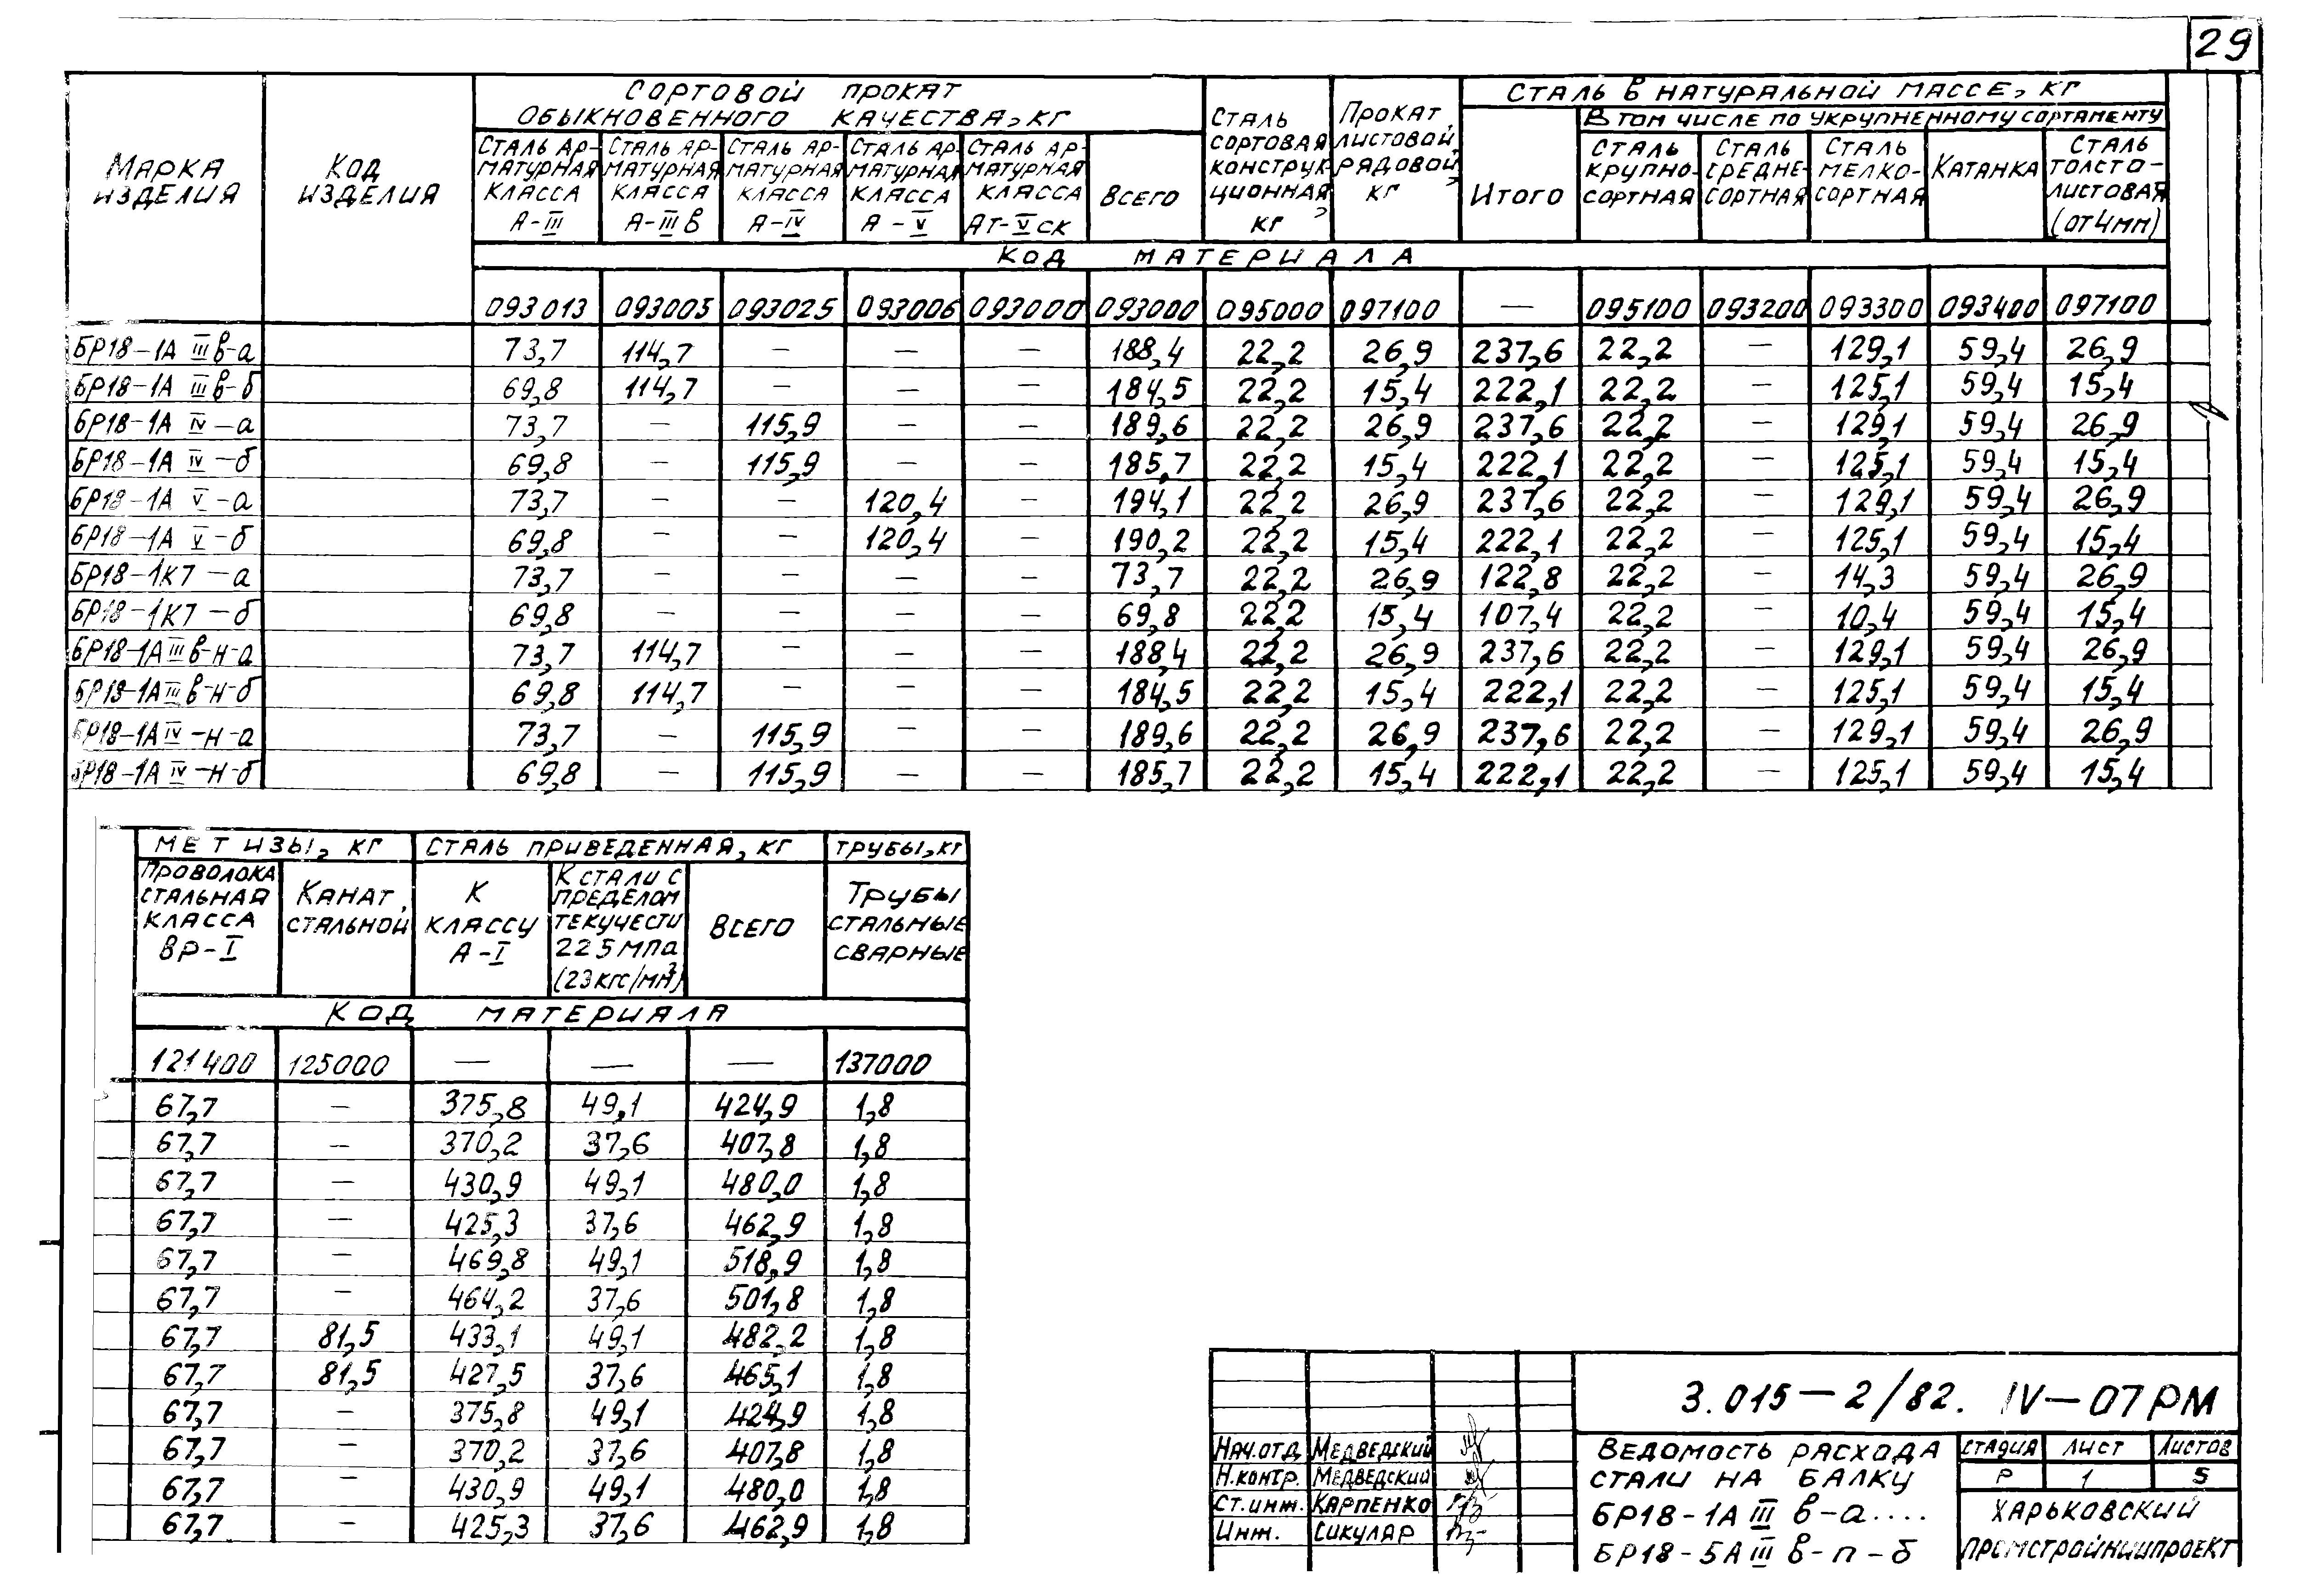 29
МАРКА ИЗДЕЛИЯ | КОД ИЗДЕЛИЯ | СОРТОВОЙ ПРОКАТ ОБЫКНОВЕННОГО КАЧЕСТВА, КГ | СТАЛЬ СОРТОВАЯ КОНСТРУКЦИОННАЯ, КГ | ПРОКАТ ЛИСТОВОЙ РЯДОВОЙ, КГ | СТАЛЬ В НАТУРАЛЬНОЙ МАССЕ, КГ
СТАЛЬ АРМАТУРНАЯ КЛАССА А-III | СТАЛЬ АРМАТУРНАЯ КЛАССА А-III В | СТАЛЬ АРМАТУРНАЯ КЛАССА А-IV | СТАЛЬ АРМАТУРНАЯ КЛАССА А-V | СТАЛЬ АРМАТУРНАЯ КЛАССА АТ-V СК | ВСЕГО | ИТОГО | В ТОМ ЧИСЛЕ ПО УКРУПНЕННОМУ СОРТАМЕНТУ
СТАЛЬ КРУПНОСОРТНАЯ | СТАЛЬ СРЕДНЕСОРТНАЯ | СТАЛЬ МЕЛКОСОРТНАЯ | КАТАНКА | СТАЛЬ ТОЛСТОЛИСТОВАЯ (ОТ 4ММ)
КОД МАТЕРИАЛА
093013 093003 093025 093006 093000 093000 095000 097100 — 095100 093200 093300 093400 097100
БР18-1А III В-а 73,7 114,7 — — — 188,4 22,2 26,9 237,6 22,2 — 129,1 59,4 26,9
БР18-1А III В-б 69,8 114,7 — — — 184,5 22,2 15,4 222,1 22,2 — 125,1 59,4 15,4
БР18-1А IV-а 73,7 — 115,9 — — 189,6 22,2 26,9 237,6 22,2 — 129,1 59,4 26,9
БР18-1А IV-б 69,8 — 115,9 — — 185,7 22,2 15,4 222,1 22,2 — 125,1 59,4 15,4
БР18-1А V-а 73,7 — — 120,4 — 194,1 22,2 26,9 237,6 22,2 — 129,1 59,4 26,9
БР18-1А V-б 69,8 — — 120,4 — 190,2 22,2 15,4 222,1 22,2 — 125,1 59,4 15,4
БР18-1К7-а 73,7 — — — — 73,7 22,2 26,9 122,8 22,2 — 14,3 59,4 26,9
БР18-1К7-б 69,8 — — — — 69,8 22,2 15,4 107,4 22,2 — 10,4 59,4 15,4
БР18-1А III В-Н-а 73,7 114,7 — — — 188,4 22,2 26,9 237,6 22,2 — 129,1 59,4 26,9
БР18-1А III В-Н-б 69,8 114,7 — — — 184,5 22,2 15,4 222,1 22,2 — 125,1 59,4 15,4
БР18-1А IV-Н-а 73,7 — 115,9 — — 189,6 22,2 26,9 237,6 22,2 — 129,1 59,4 26,9
БР18-1А IV-Н-б 69,8 — 115,9 — — 185,7 22,2 15,4 222,1 22,2 — 125,1 59,4 15,4
МЕТИЗЫ, КГ | СТАЛЬ ПРИВЕДЕННАЯ, КГ | ТРУБЫ, КГ
ПРОВОЛОКА СТАЛЬНАЯ КЛАССА ВР-I | КАНАТ СТАЛЬНОЙ | К КЛАССУ А-I | К СТАЛИ С ПРЕДЕЛОМ ТЕКУЧЕСТИ 225 МПа (23 КГС/ММ²) | ВСЕГО | ТРУБЫ СТАЛЬНЫЕ СВАРНЫЕ
КОД МАТЕРИАЛА
121400 125000 — — — 137000
67,7 — 375,8 49,1 424,9 1,8
67,7 — 370,2 37,6 407,8 1,8
67,7 — 430,9 49,1 480,0 1,8
67,7 — 425,3 37,6 462,9 1,8
67,7 — 469,8 49,1 518,9 1,8
67,7 — 464,2 37,6 501,8 1,8
67,7 81,5 433,1 49,1 482,2 1,8
67,7 81,5 427,5 37,6 465,1 1,8
67,7 — 375,8 49,1 424,9 1,8
67,7 — 370,2 37,6 407,8 1,8
67,7 — 430,9 49,1 480,0 1,8
67,7 — 425,3 37,6 462,9 1,8
3.015-2/82. IV-07РМ
НАЧ.ОТД МЕДВЕДСКИЙ
Н.КОНТР. МЕДВЕДСКИЙ
СТ.ИНЖ. КАРПЕНКО
ИНЖ. СИКУЛЯР
ВЕДОМОСТЬ РАСХОДА
СТАЛИ НА БАЛКУ
БР18-1А III В-а....
БР18-5А III В-П-б
СТАДИЯ ЛИСТ ЛИСТОВ
Р 1 5
ХАРЬКОВСКИЙ
ПРОМСТРОЙНИИПРОЕКТ